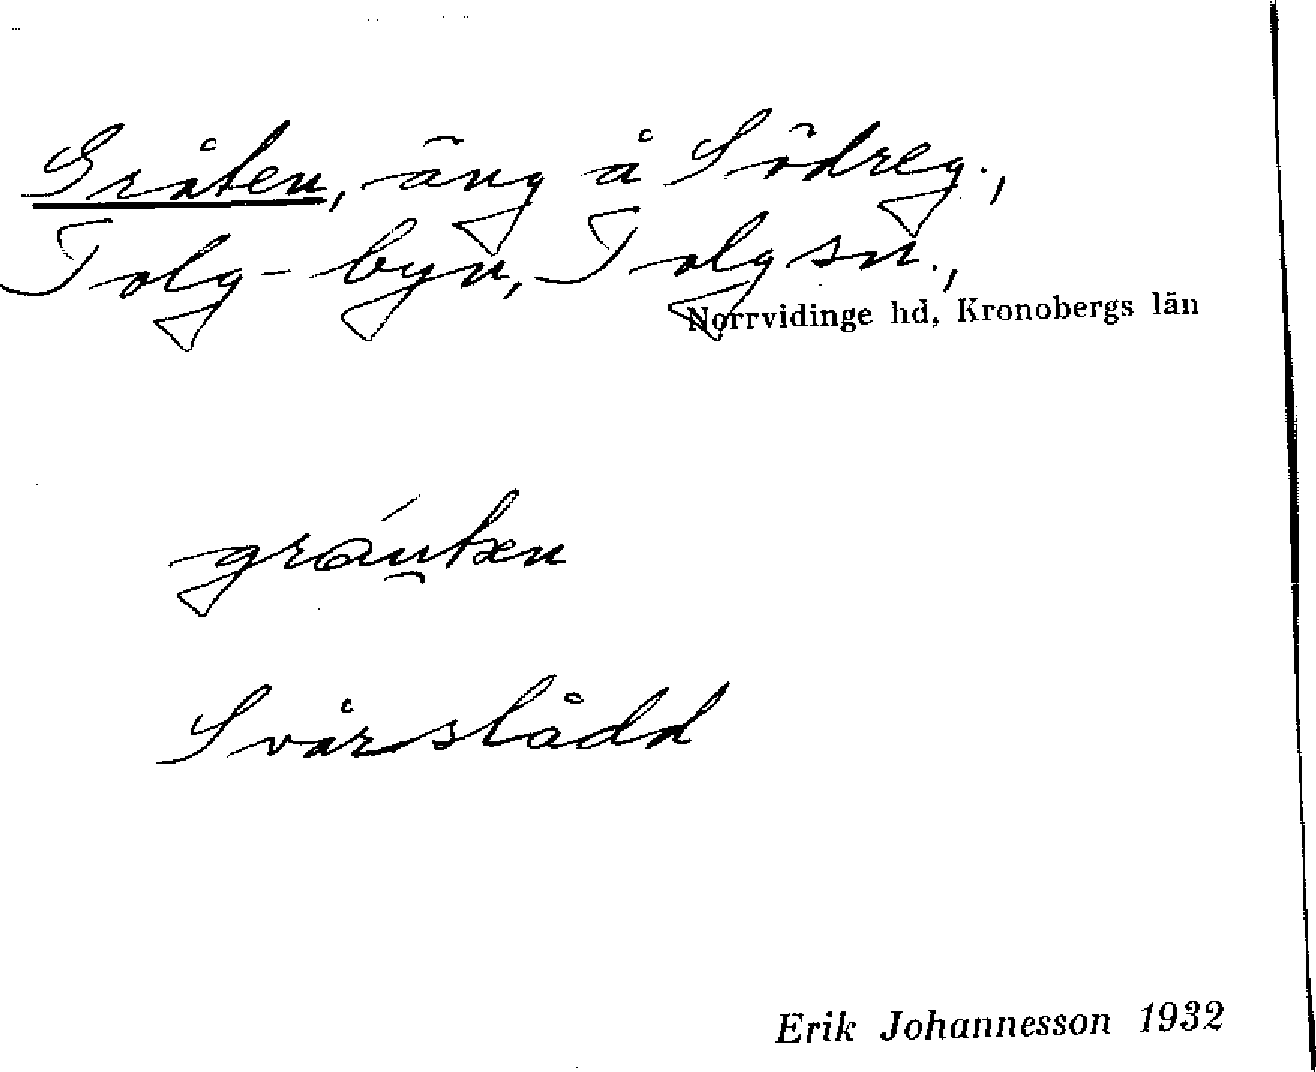 Gråten, äng å Södreg.,
Tolg-byn, Tolg sn.,
Norrvidinge hd, Kronobergs län
gráu̯tæn
Svårslådd
Erik Johannesson 1932